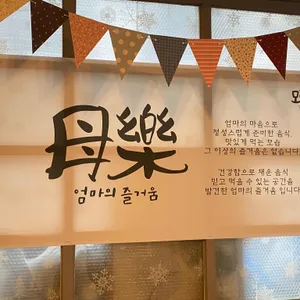 母樂
엄마의 즐거움
엄마의 마음으로
정성스럽게 준비한 음식
맛있게 먹는 모습
그 이상의 즐거움은 없습니다
건강함으로 채운 음식
믿고 먹을 수 있는 공간을
발견한 엄마의 즐거움 입니다